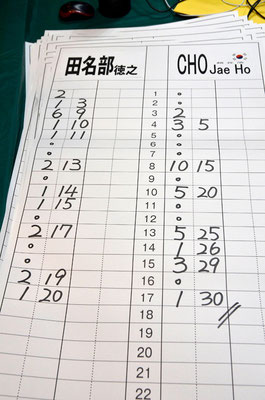 田名部徳之 CHO Jae Ho
2 1 o
1 3 2 o
6 9 3 2
1 10 4 3 5
1 11 5 o
o 6 o
o 7 o
2 13 8 10 15
o 9 o
1 14 10 5 20
1 15 11 o
o 12 o
2 17 13 5 25
o 14 1 26
o 15 3 29
2 19 16 o
1 20 17 1 30
18
19
20
21
22